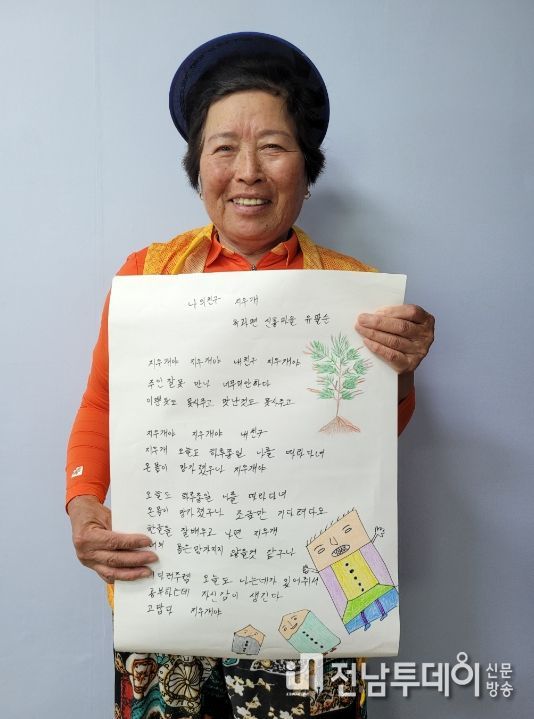 나의친구 지우개
신흥마을 유팔순
지우개야 지우개야 내친구 지우개야
주인잘못 만나 너무미안하다
이쁜옷도 못사주고 맛난것도 못사주고
지우개야 지우개야 내친구
지우개 오늘도 하루종일 나를 따라다녀
온몸이 망가졌구나 지우개야
오늘도 하루종일 나를 따라다녀
온몸이 망가졌구나 조금만 기다려다오
한글을 잘배우고 나면 지우개
너의 몸은망가지지 않을것 같구나
기다려주렴 오늘도 나는네가 있어줘서
공부하는데 자신감이 생긴다
지우개야
전남투데이 신문
방송